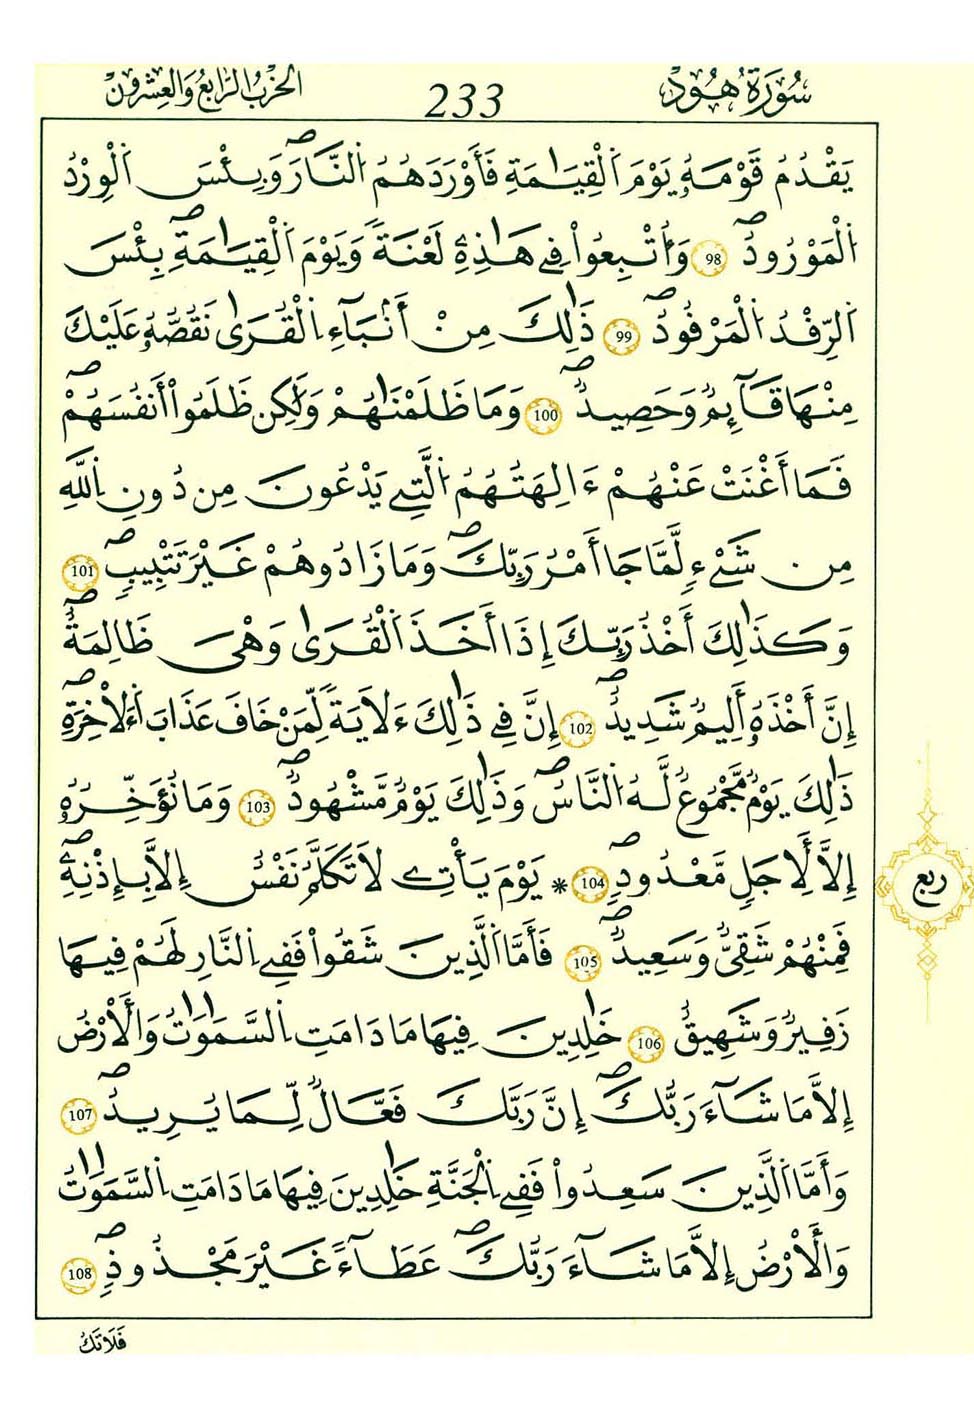 سُورَةُ هُودٍ 233 الحِزْبُ الرَّابِعُ وَالعِشْرُونَ
يَقْدُمُ قَوْمَهُۥ يَوْمَ اَ۬لْقِيَٰمَةِ فَأَوْرَدَهُمُ اُ۬لنَّارَۖ وَبِئْسَ اَ۬لْوِرْدُ
اُ۬لْمَوْرُودُۖ 98 وَأُتْبِعُواْ فِے هَٰذِهِۦ لَعْنَةٗ وَيَوْمَ اَ۬لْقِيَٰمَةِۖ بِئْسَ
اَ۬لرِّفْدُ اُ۬لْمَرْفُودُۖ 99 ذَٰلِكَ مِنْ أَنۢبَآءِ اِ۬لْقُر۪ىٰ نَقُصُّهُۥ عَلَيْكَ
مِنْهَا قَآئِمٞ وَحَصِيدٞۖ 100 وَمَا ظَلَمْنَٰهُمْ وَلَٰكِن ظَلَمُوٓاْ أَنفُسَهُمْۖ
فَمَا أَغْنَتْ عَنْهُمْ ءَالِهَتُهُمُ اُ۬لَّتِے يَدْعُونَ مِن دُونِ اِ۬للَّهِ
مِن شَےْءٖ لَّمَّا جَا أَمْرُ رَبِّكَۖ وَمَا زَادُوهُمْ غَيْرَ تَتْبِيبٖۖ 101
وَكَذَٰلِكَ أَخْذُ رَبِّكَ إِذَا أَخَذَ اَ۬لْقُر۪ىٰ وَهْيَ ظَالِمَةٌۖ
إِنَّ أَخْذَهُۥ أَلِيمٞ شَدِيدٌۖ 102 إِنَّ فِے ذَٰلِكَ ءَلَايَةٗ لِّمَنْ خَافَ عَذَابَ اَ۬ءَلَاخِرَةِۖ
ذَٰلِكَ يَوْمٞ مَّجْمُوعٞ لَّهُ اُ۬لنَّاسُۖ وَذَٰلِكَ يَوْمٞ مَّشْهُودٞۖ 103 وَمَا نُؤَخِّرُهُۥ
إِلَّا لِأَجَلٖ مَّعْدُودٖۖ 104 * يَوْمَ يَأْتِے لَا تَكَلَّمُ نَفْسٌ إِلَّا بِإِذْنِهِۦۖ
فَمِنْهُمْ شَقِيّٞ وَسَعِيدٞۖ 105 فَأَمَّا اَ۬لَّذِينَ شَقُواْ فَفِے اِ۬لنَّارِ لَهُمْ فِيهَا
زَفِيرٞ وَشَهِيقٌ 106 خَٰلِدِينَ فِيهَا مَا دَامَتِ اِ۬لسَّمَٰوَٰتُ وَالْأَرْضُ
إِلَّا مَا شَآءَ رَبُّكَۖ إِنَّ رَبَّكَ فَعَّالٞ لِّمَا يُرِيدُۖ 107
وَأَمَّا اَ۬لَّذِينَ سَعِدُواْ فَفِے اِ۬لْجَنَّةِ خَٰلِدِينَ فِيهَا مَا دَامَتِ اِ۬لسَّمَٰوَٰتُ
وَالْأَرْضُ إِلَّا مَا شَآءَ رَبُّكَۖ عَطَآءً غَيْرَ مَجْذُوذٖۖ 108
ربع
فَلَا تَكُ